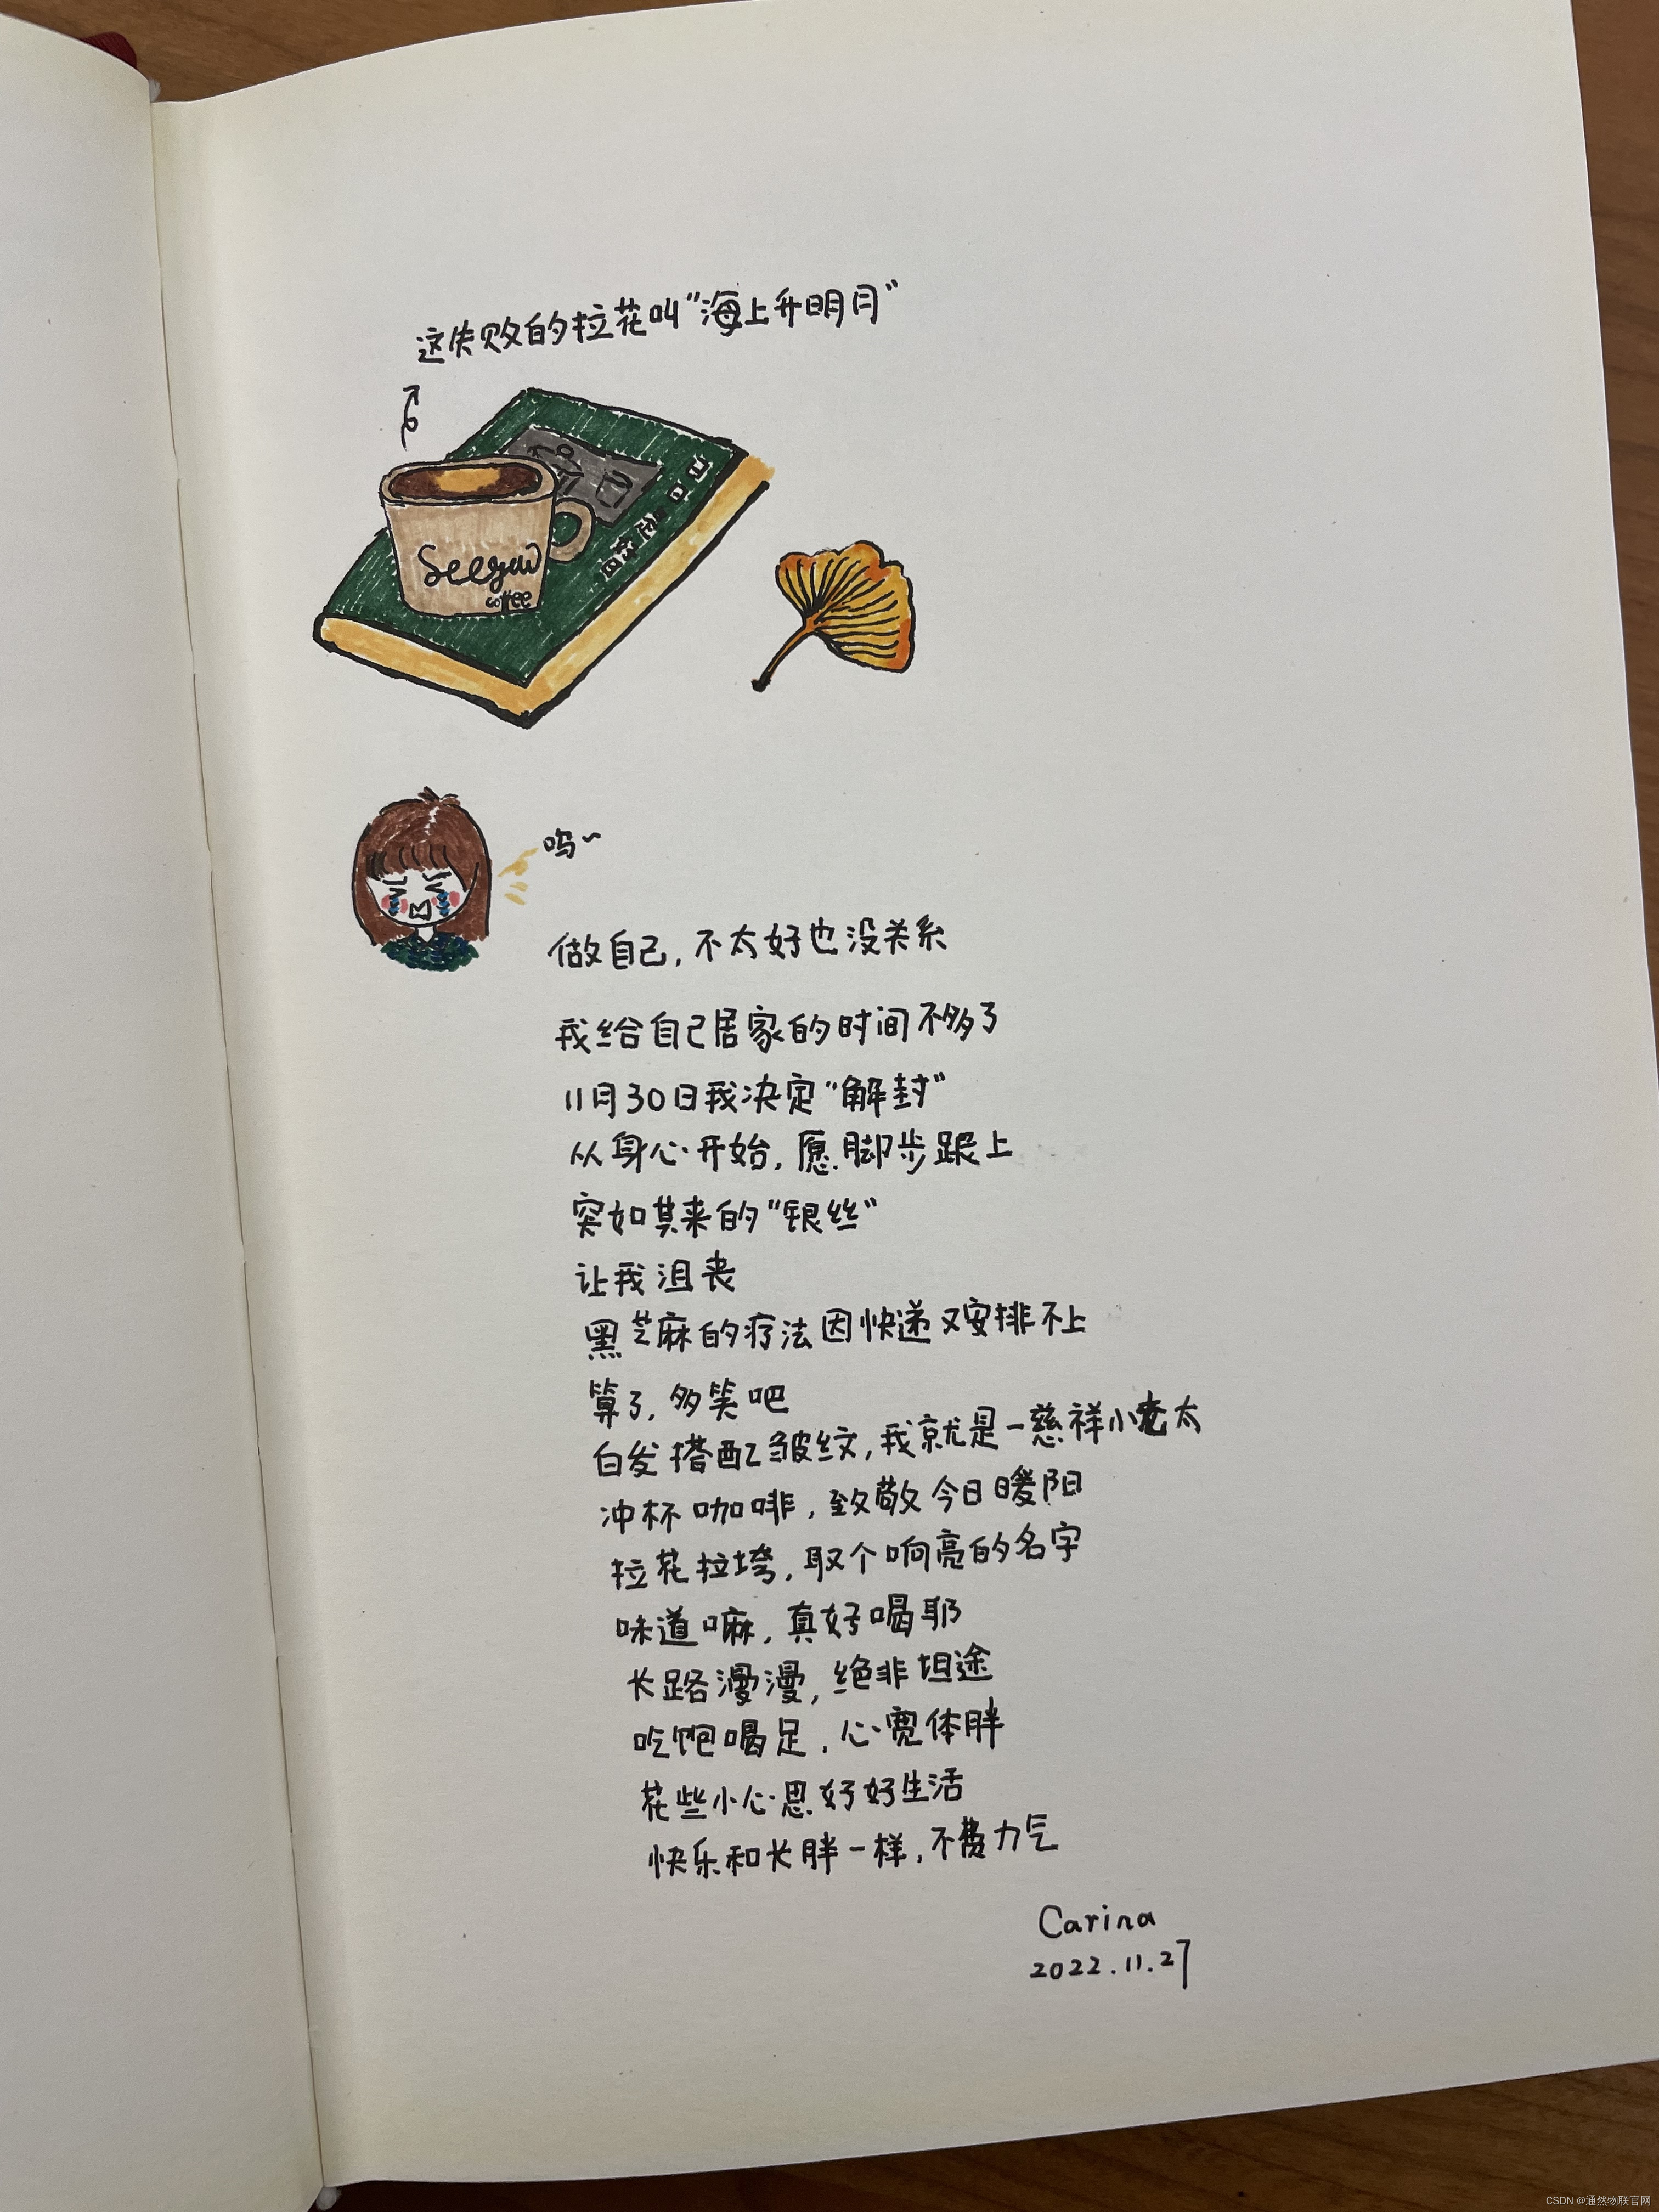 这失败的拉花叫"海上升明月"
Seesaw
coffee
呜~
做自己，不太好也没关系
我给自己居家的时间不多了
11月30日我决定"解封"
从身心开始，愿脚步跟上
突如其来的"银丝"
让我沮丧
黑芝麻的疗法因快递又安排不上
算了，多笑吧
白发搭配皱纹，我就是一慈祥小老太
冲杯咖啡，致敬今日暖阳
拉花拉垮，取个响亮的名字
味道嘛，真好喝耶
长路漫漫，绝非坦途
吃饱喝足，心宽体胖
花些小心思好好生活
快乐和长胖一样，不费力气
Carina
2022.11.27
CSDN @通然物联官网